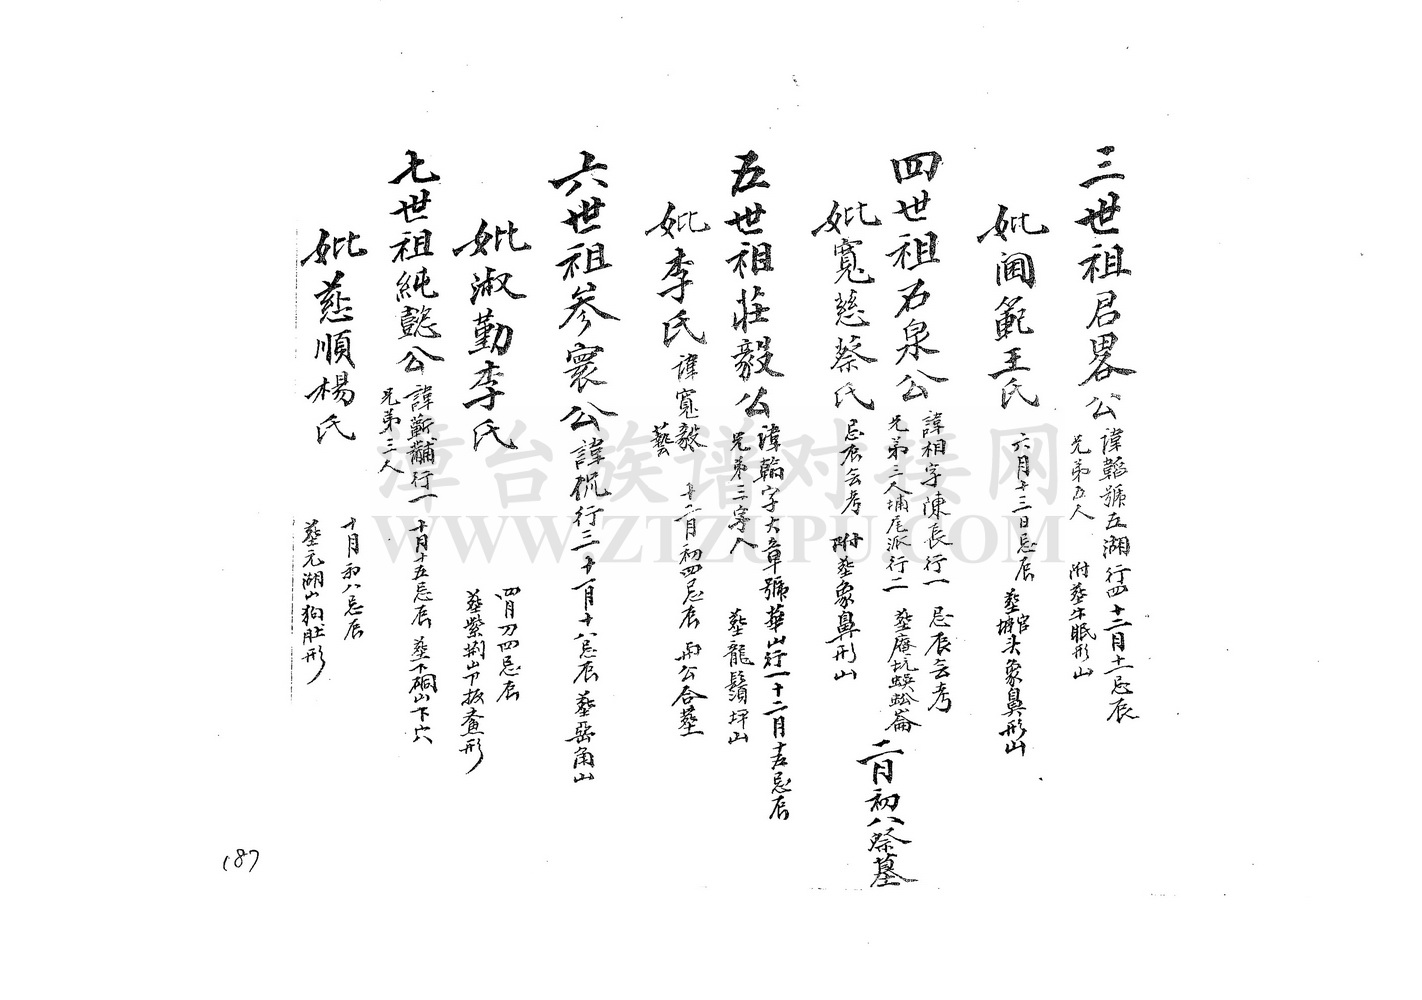 三世祖君畧公
諱韜號五湖行四十二月十一忌辰
兄弟五人 附塟牛眠形山
妣闺範王氏
六月十三日忌辰 塟官塘头象鼻形山
四世祖石泉公
諱相字陳長行一 忌辰失考
兄弟三人埔尾派行二 塟庵坑蜈蚣崙
二月初八祭墓
妣寬慈蔡氏
忌辰失考 附塟象鼻形山
五世祖莊毅公
諱翰字大章號華山行一十二月十五忌辰
兄弟三人 塟龍鬚坪山
妣李氏
諱寬毅 十二月初四忌辰 与公合塟
六世祖参寰公
諱侃行三十一月十八忌辰 塟岳角山
妣淑勤李氏
四月初四忌辰
塟紫荊山下扳盫形
七世祖純懿公
諱蘄黼行一 十月十五忌辰 塟下硐山下穴
兄弟三人
妣慈順楊氏
十月初八忌辰
塟元湖山狗肚形
187
漳台族谱对接网
WWW.ZTZUPU.COM